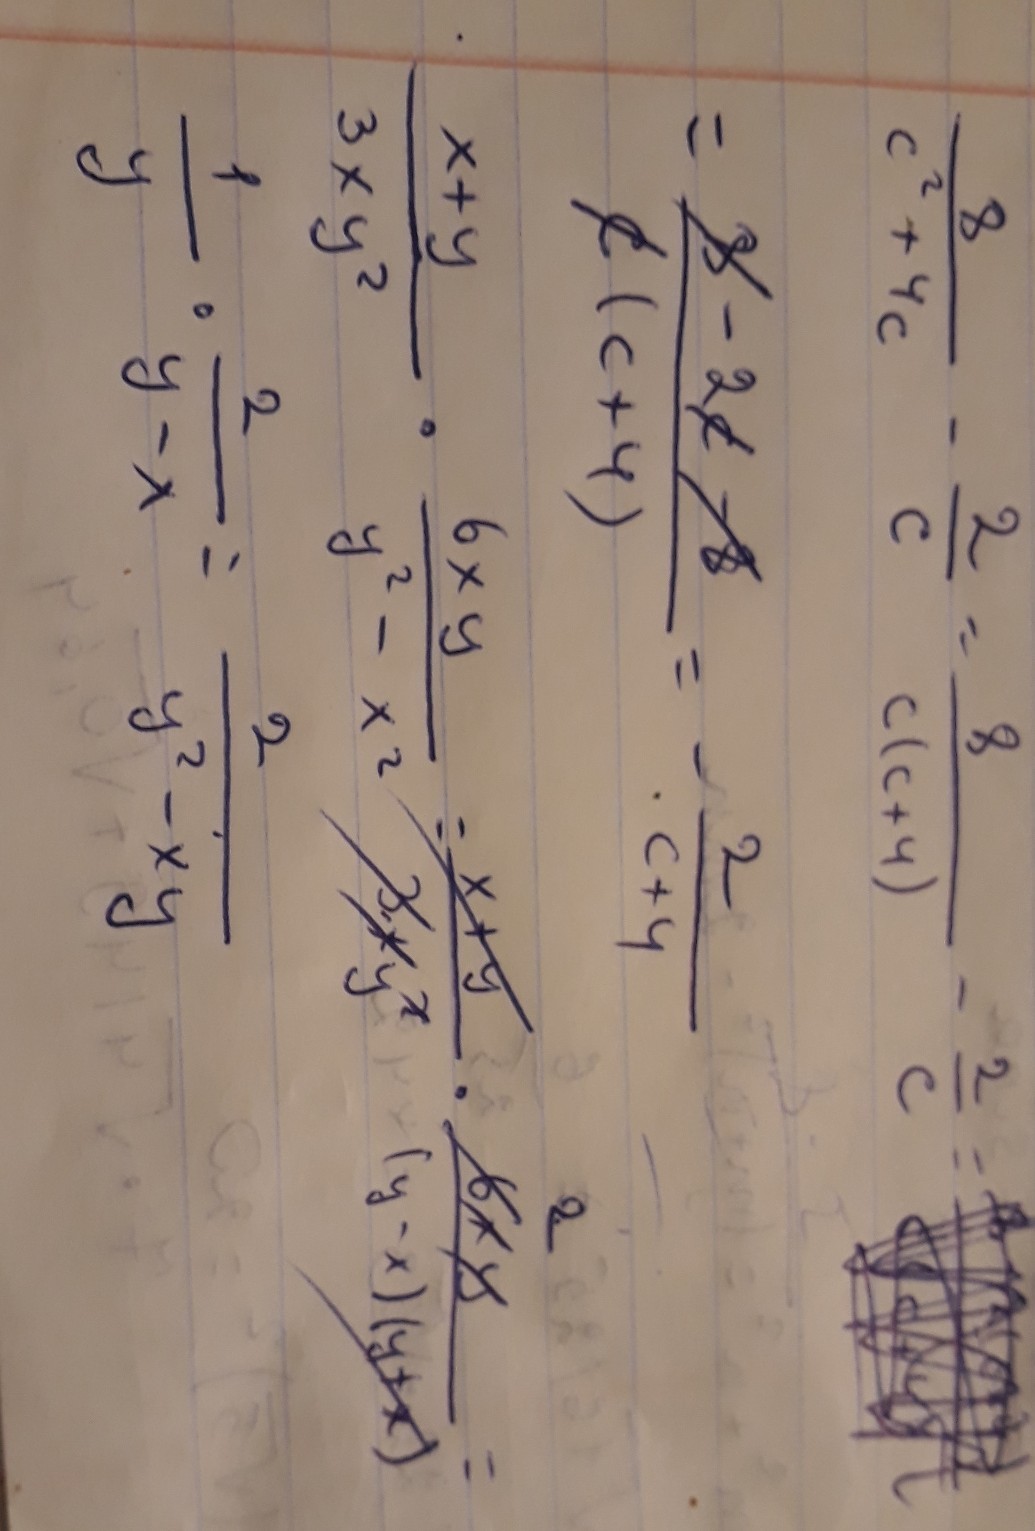 8/(c² + 4c) - 2/c = 8/(c(c+4)) - 2/c =
= (8 - 2c - 8)/(c(c+4)) = - 2/(c+4)
(x+y)/(3xy²) · 6xy/(y² - x²) = (x+y)/(3xy²) · 6xy/((y-x)(y+x)) 2 =
1/y · 2/(y-x) = 2/(y² - xy)